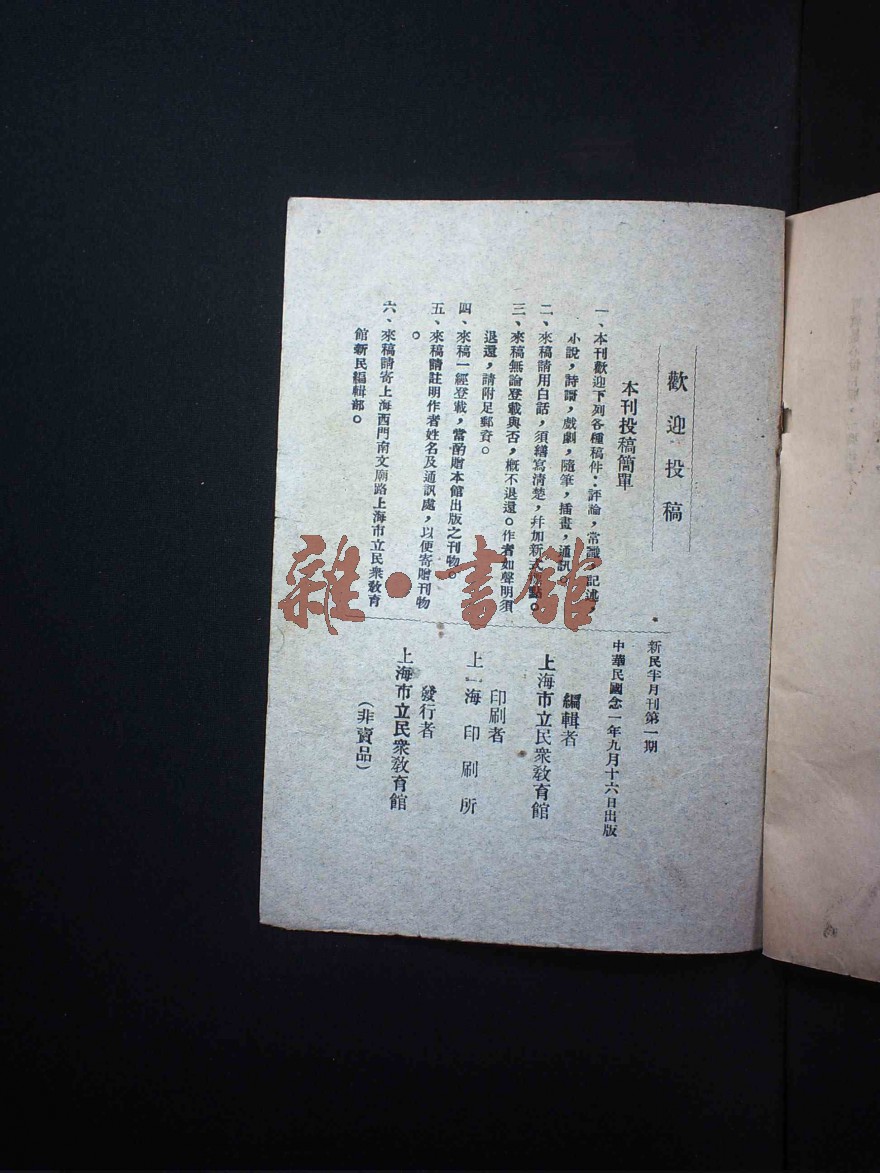 歡迎投稿
本刊投稿簡單
一、本刊歡迎下列各種稿件：評論，常識，記述，
小說，詩謌，戲劇，隨筆，插畫，通訊。
二、來稿請用白話，須繕寫清楚，幷加新式標點。
三、來稿無論登載與否，槪不退還。作者如聲明須
退還，請附足郵資。
四、來稿一經登載，當酌贈本館出版之刊物。
五、來稿請註明作者姓名及通訊處，以便寄贈刊物
。
六、來稿請寄上海西門南文廟路上海市立民衆敎育
館新民編輯部。
新民半月刊第一期
中華民國念一年九月十六日出版
編輯者
上海市立民衆敎育館
印刷者
上海印刷所
發行者
上海市立民衆敎育館
（非賣品）
雜·書館